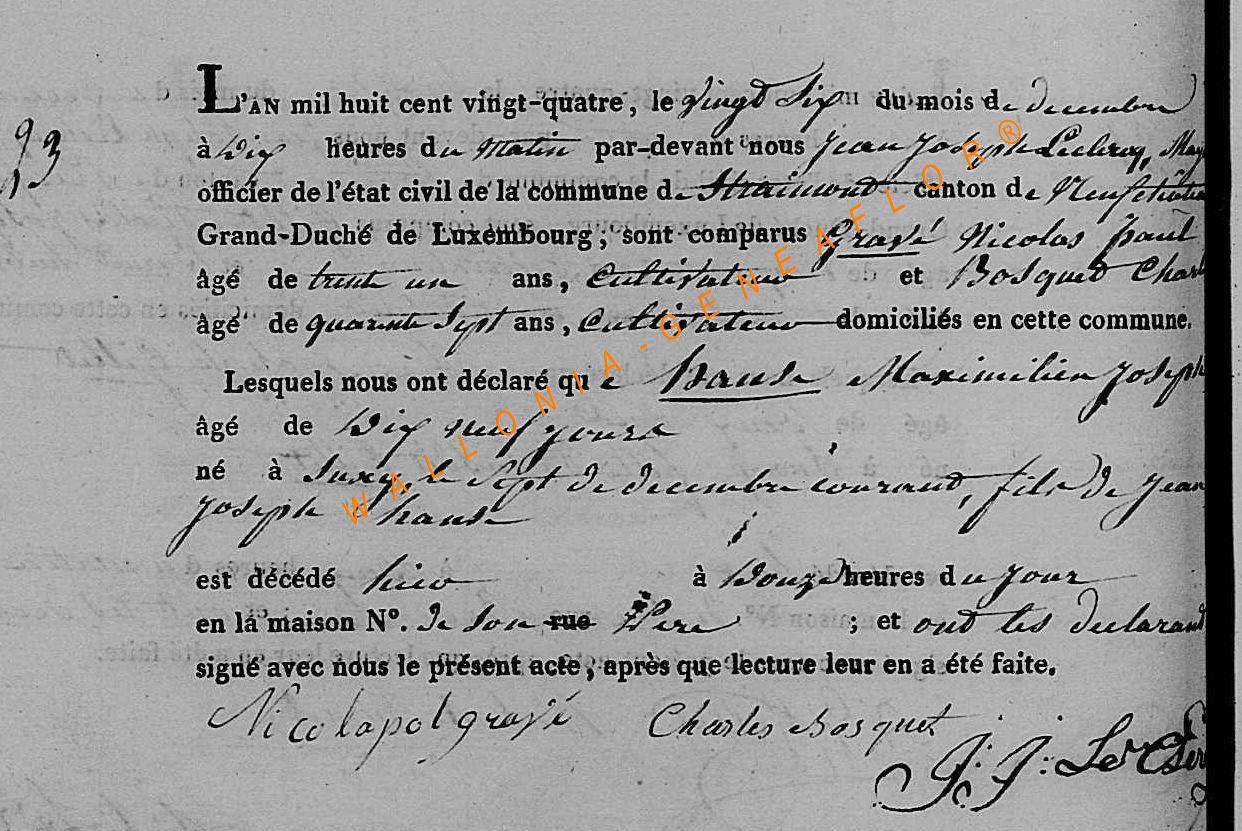 L'AN mil huit cent vingt-quatre, le vingt Six du mois de decembre
à Dix heures du matin par-devant nous Jean Joseph Leclerq, May
officier de l'état civil de la commune de Straimont canton de Neufchatea
Grand-Duché de Luxembourg; sont comparus Gravé Nicolas paul
âgé de trente un ans, Cultivateur et Bosquet Charl
âgé de quarante Sept ans, Cultivateur domiciliés en cette commune.
Lesquels nous ont déclaré que hanse Maximilien Joseph
âgé de Dix neuf jours
né à Suxy, le Sept de decembre courant, fils de Jean
Joseph hanse
est décédé hier à Douze heures du jour
en la maison N°. de son rue Pere ; et ont les declarant
signé avec nous le présent acte, après que lecture leur en a été faite.
Nicolapol gravé Charles Bosquet
J: J: Le
93
WALLONIA-GENEAFLOR®